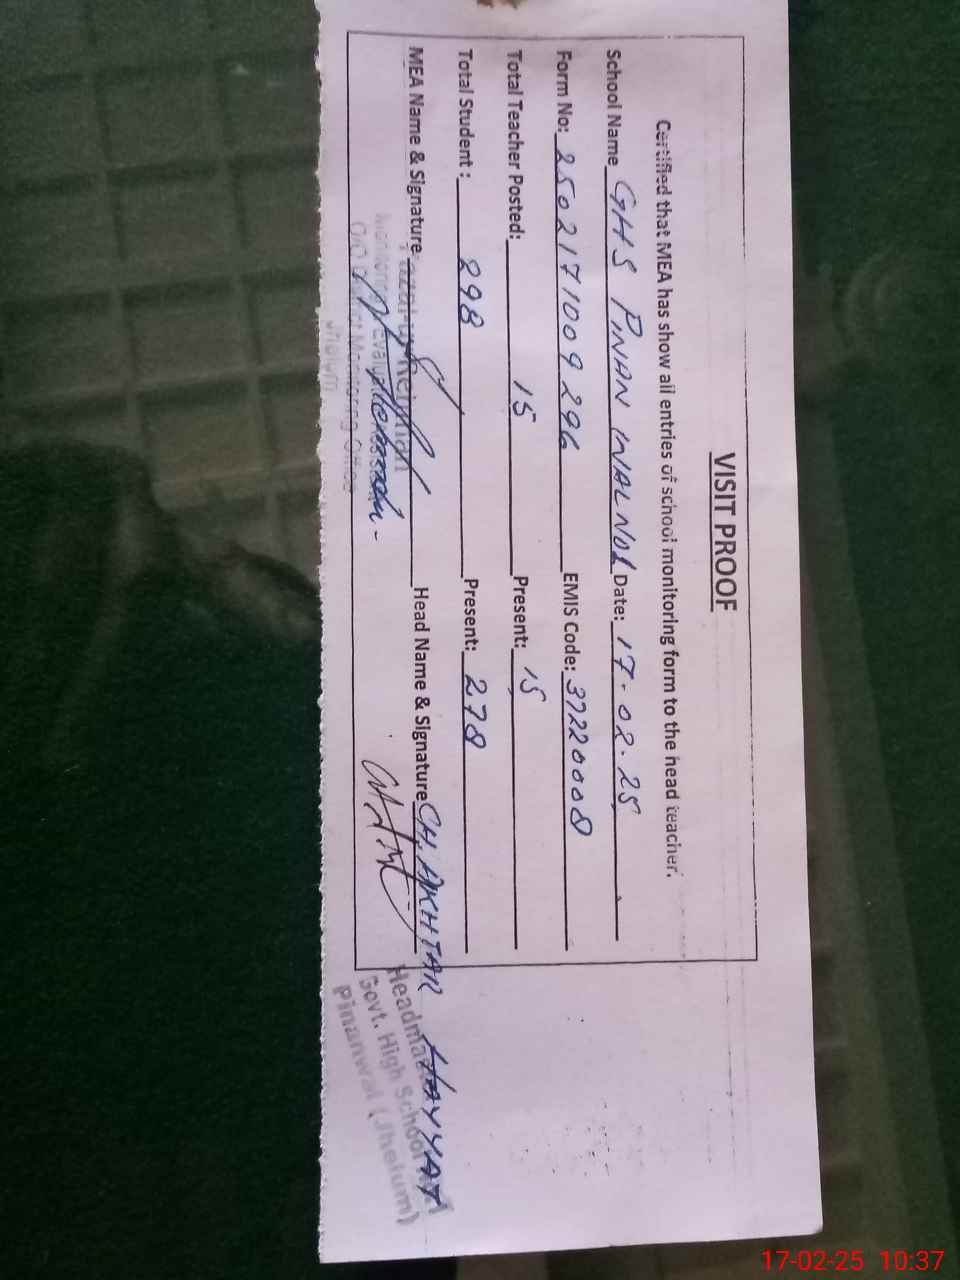 VISIT PROOF
Certified that MEA has show all entries of school monitoring form to the head teacher.
School Name GHS PINAN WAL NO1 Date: 17.02.25
Form No: 2502171009296 EMIS Code: 37220008
Total Teacher Posted: 15 Present: 15
Total Student: 298 Present: 278
MEA Name & Signature Head Name & Signature CH. AKHTAR HAYYAT
Monitoring
O/O District Monitoring Office
Jhelum
Headmaster
Govt. High School
Pinanwal (Jhelum)
17-02-25 10:37